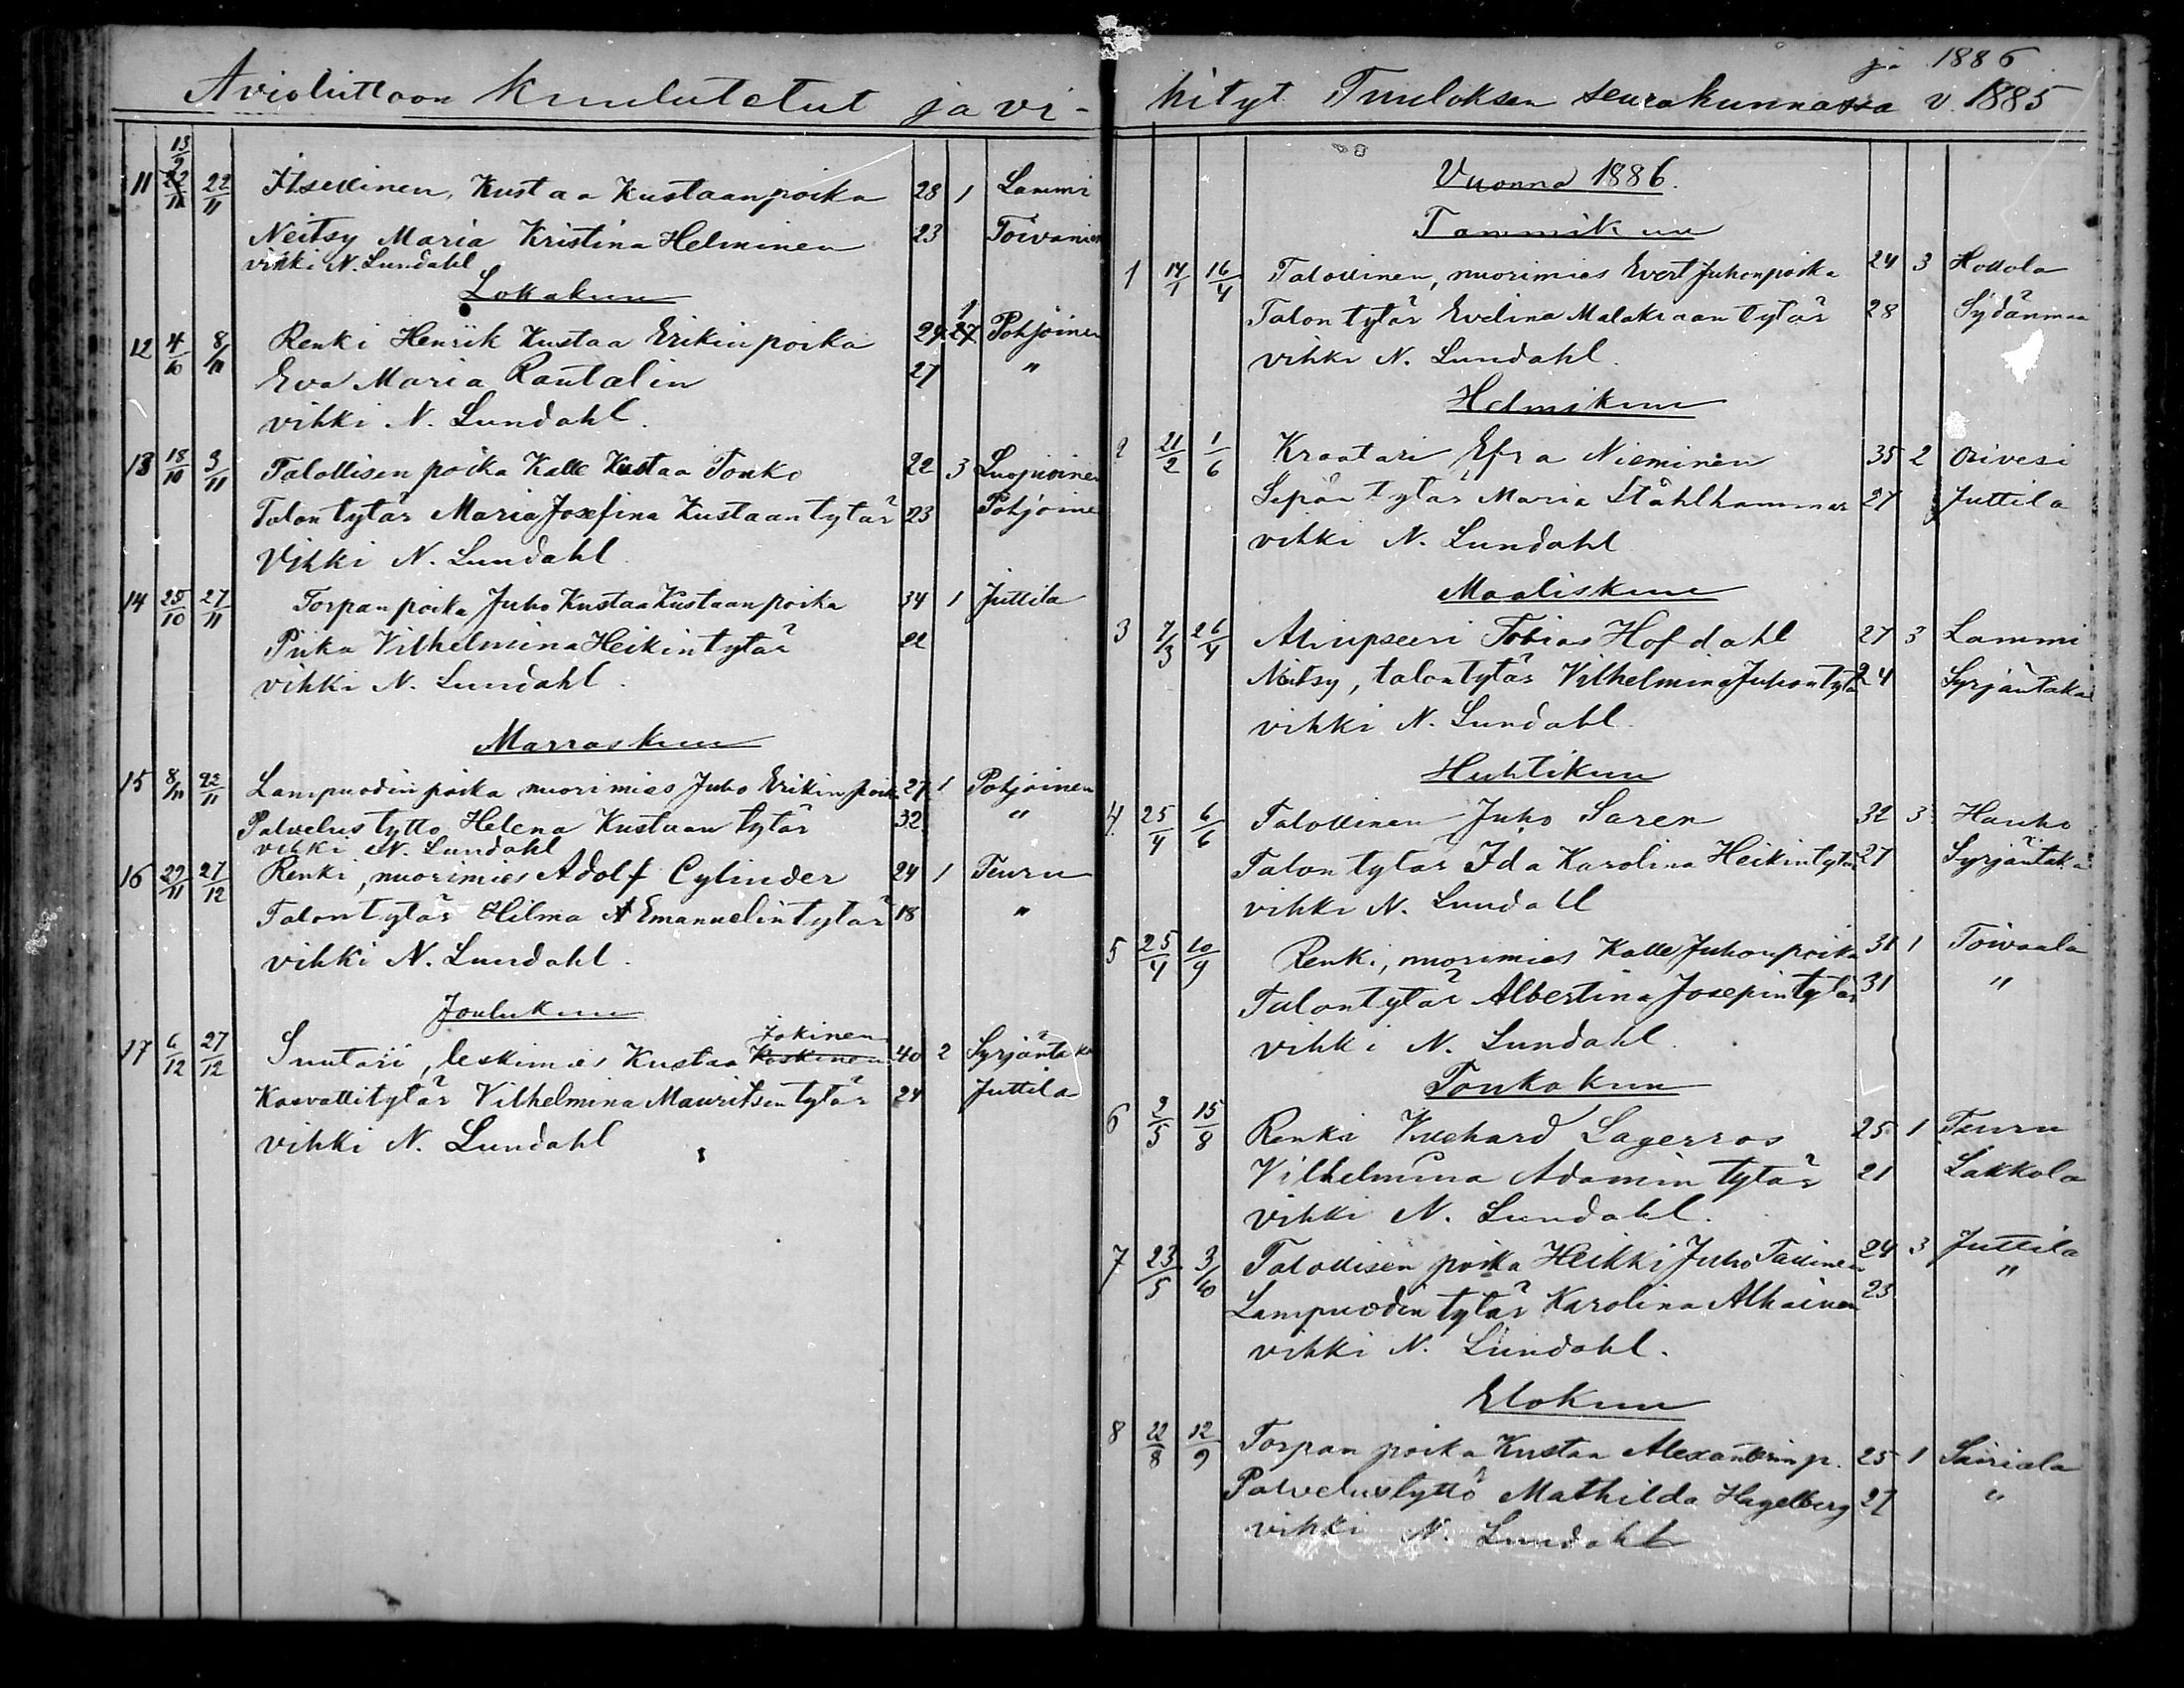 Avioliittoon kuulutetut ja vi-
13/9
11 22/11 Itsellinen, Kustaa Kustaanpoika 28 1 Lammi
Neitsy Maria Kristina Helminen 23
vihki N. Lundahl
Lokakuu
12 4/10 8/11 Renki Henrik Kustaa Erikin poika 29 1 27 Pohjoinen
Eva Maria Rautalin 27 "
vihki N. Lundahl.
13 18/10 3/11 Talollisen poika Kalle Kustaa Tonko 22 3
Talon tytär Maria Josefina Kustaan tytär 23 Pohjoine
Vihki N. Lundahl.
14 25/10 27/11 Torpan poika Juho Kustaa Kustaanpoika 34 1 Juttila
Piika Vilhelmina Heikin tytär 22
vihki N. Lundahl.
Marraskuu
15 8/11 22/11 Lampuodin poika nuorimies Juho Erikin poika 27 1 Pohjoinen
Palvelus tyttö Helena Kustaan tytär 32 "
vihki N. Lundahl
16 29/11 27/12 Renki, nuorimies Adolf Cylinder 24 1 Teuru
Talon tytär Hilma A Emanuelin tytär 18 "
vihki N. Lundahl.
Joulukuu
Jokinen
17 6/12 27/12 Suutari, leskimies Kustaa Koskinen 40 2 Syrjäntaka
Kasvattitytär Vilhelmina Mauritsin tytär 24 Juttila
vihki N. Lundahl
ja 1886
hityt Tuuloksen seurakunnassa v. 1885
Vuonna 1886.
Tammikuu
1 17/1 16/4 Talollinen, nuorimies Evert Juhonpoika 24 3 Hollola
Talon tytär Evelina Malakiaan tytär 28 Sydänmaa
vihki N. Lundahl.
Helmikuu
2 21/2 1/6 Kraatari Efra Nieminen 35 2 Orivesi
Sepän tytär Maria Ståhlhammar 27 Juttila
vihki N. Lundahl
Maaliskuu
3 7/3 26/4 Aliupseeri Tobias Hofdahl 27 3 Lammi
Neitsy, talon tytär Vilhelmina Juhon tytär 24 Syrjäntaka
vihki N. Lundahl.
Huhtikuu
4 25/4 6/6 Talollinen Juho Saren 32 3 Hauho
Talon tytär Ida Karolina Heikin tytär 27 Syrjäntaka
vihki N. Lundahl
5 25/4 10/9 Renki, nuorimies Kalle Juhonpoika 31 1 Toivaala
Talon tytär Albertina Josepin tytär 31 "
vihki N. Lundahl.
Toukokuu
6 2/5 15/8 Renki Lagerros 25 1 Teuru
Vilhelmina Adamin tytär 21 Lakkola
vihki N. Lundahl.
7 23/5 3/10 Talollisen poika Heikki Juho Tallinen 24 3 Juttila
Lampuodin tytär Karolina Alhainen 23 "
vihki N. Lundahl.
Elokuu
8 22/8 12/9 Torpan poika Kustaa Alexanterin p. 25 1 Sairiala
Palvelustyttö Mathilda Hagelberg 27 "
vihki N. Lundahl